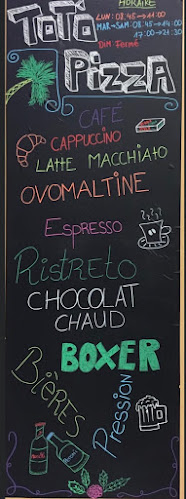 HORAIRE
TOTO
LUN: 08:45→14:00
MAR→SAM: 08:45→14:00
17:00→21:30
DIM Fermé
PIZZA
CAFÉ
CAPPUCCINO
LATTE MACCHIATO
OVOMALTINE
ESPRESSO
RISTRETO
CHOCOLAT
CHAUD
BOXER
BIÈRES
PRESSION